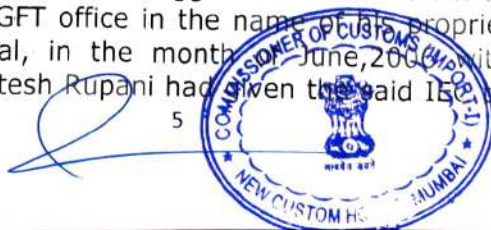 GFT office in the name of his proprie
al, in the month of June,2006 wit
tesh Rupani had given the said IEC
5
COMMISSIONER OF CUSTOMS (IMPORT-I)
सत्यमेव जयते
NEW CUSTOM MUMBAI